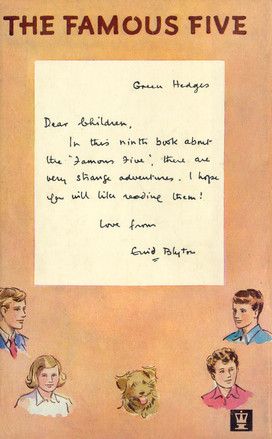 THE FAMOUS FIVE
Green Hedges
Dear Children,
In this ninth book about
the "Famous Five", there are
very strange adventures. I hope
you will like reading them!
Love from
Enid Blyton